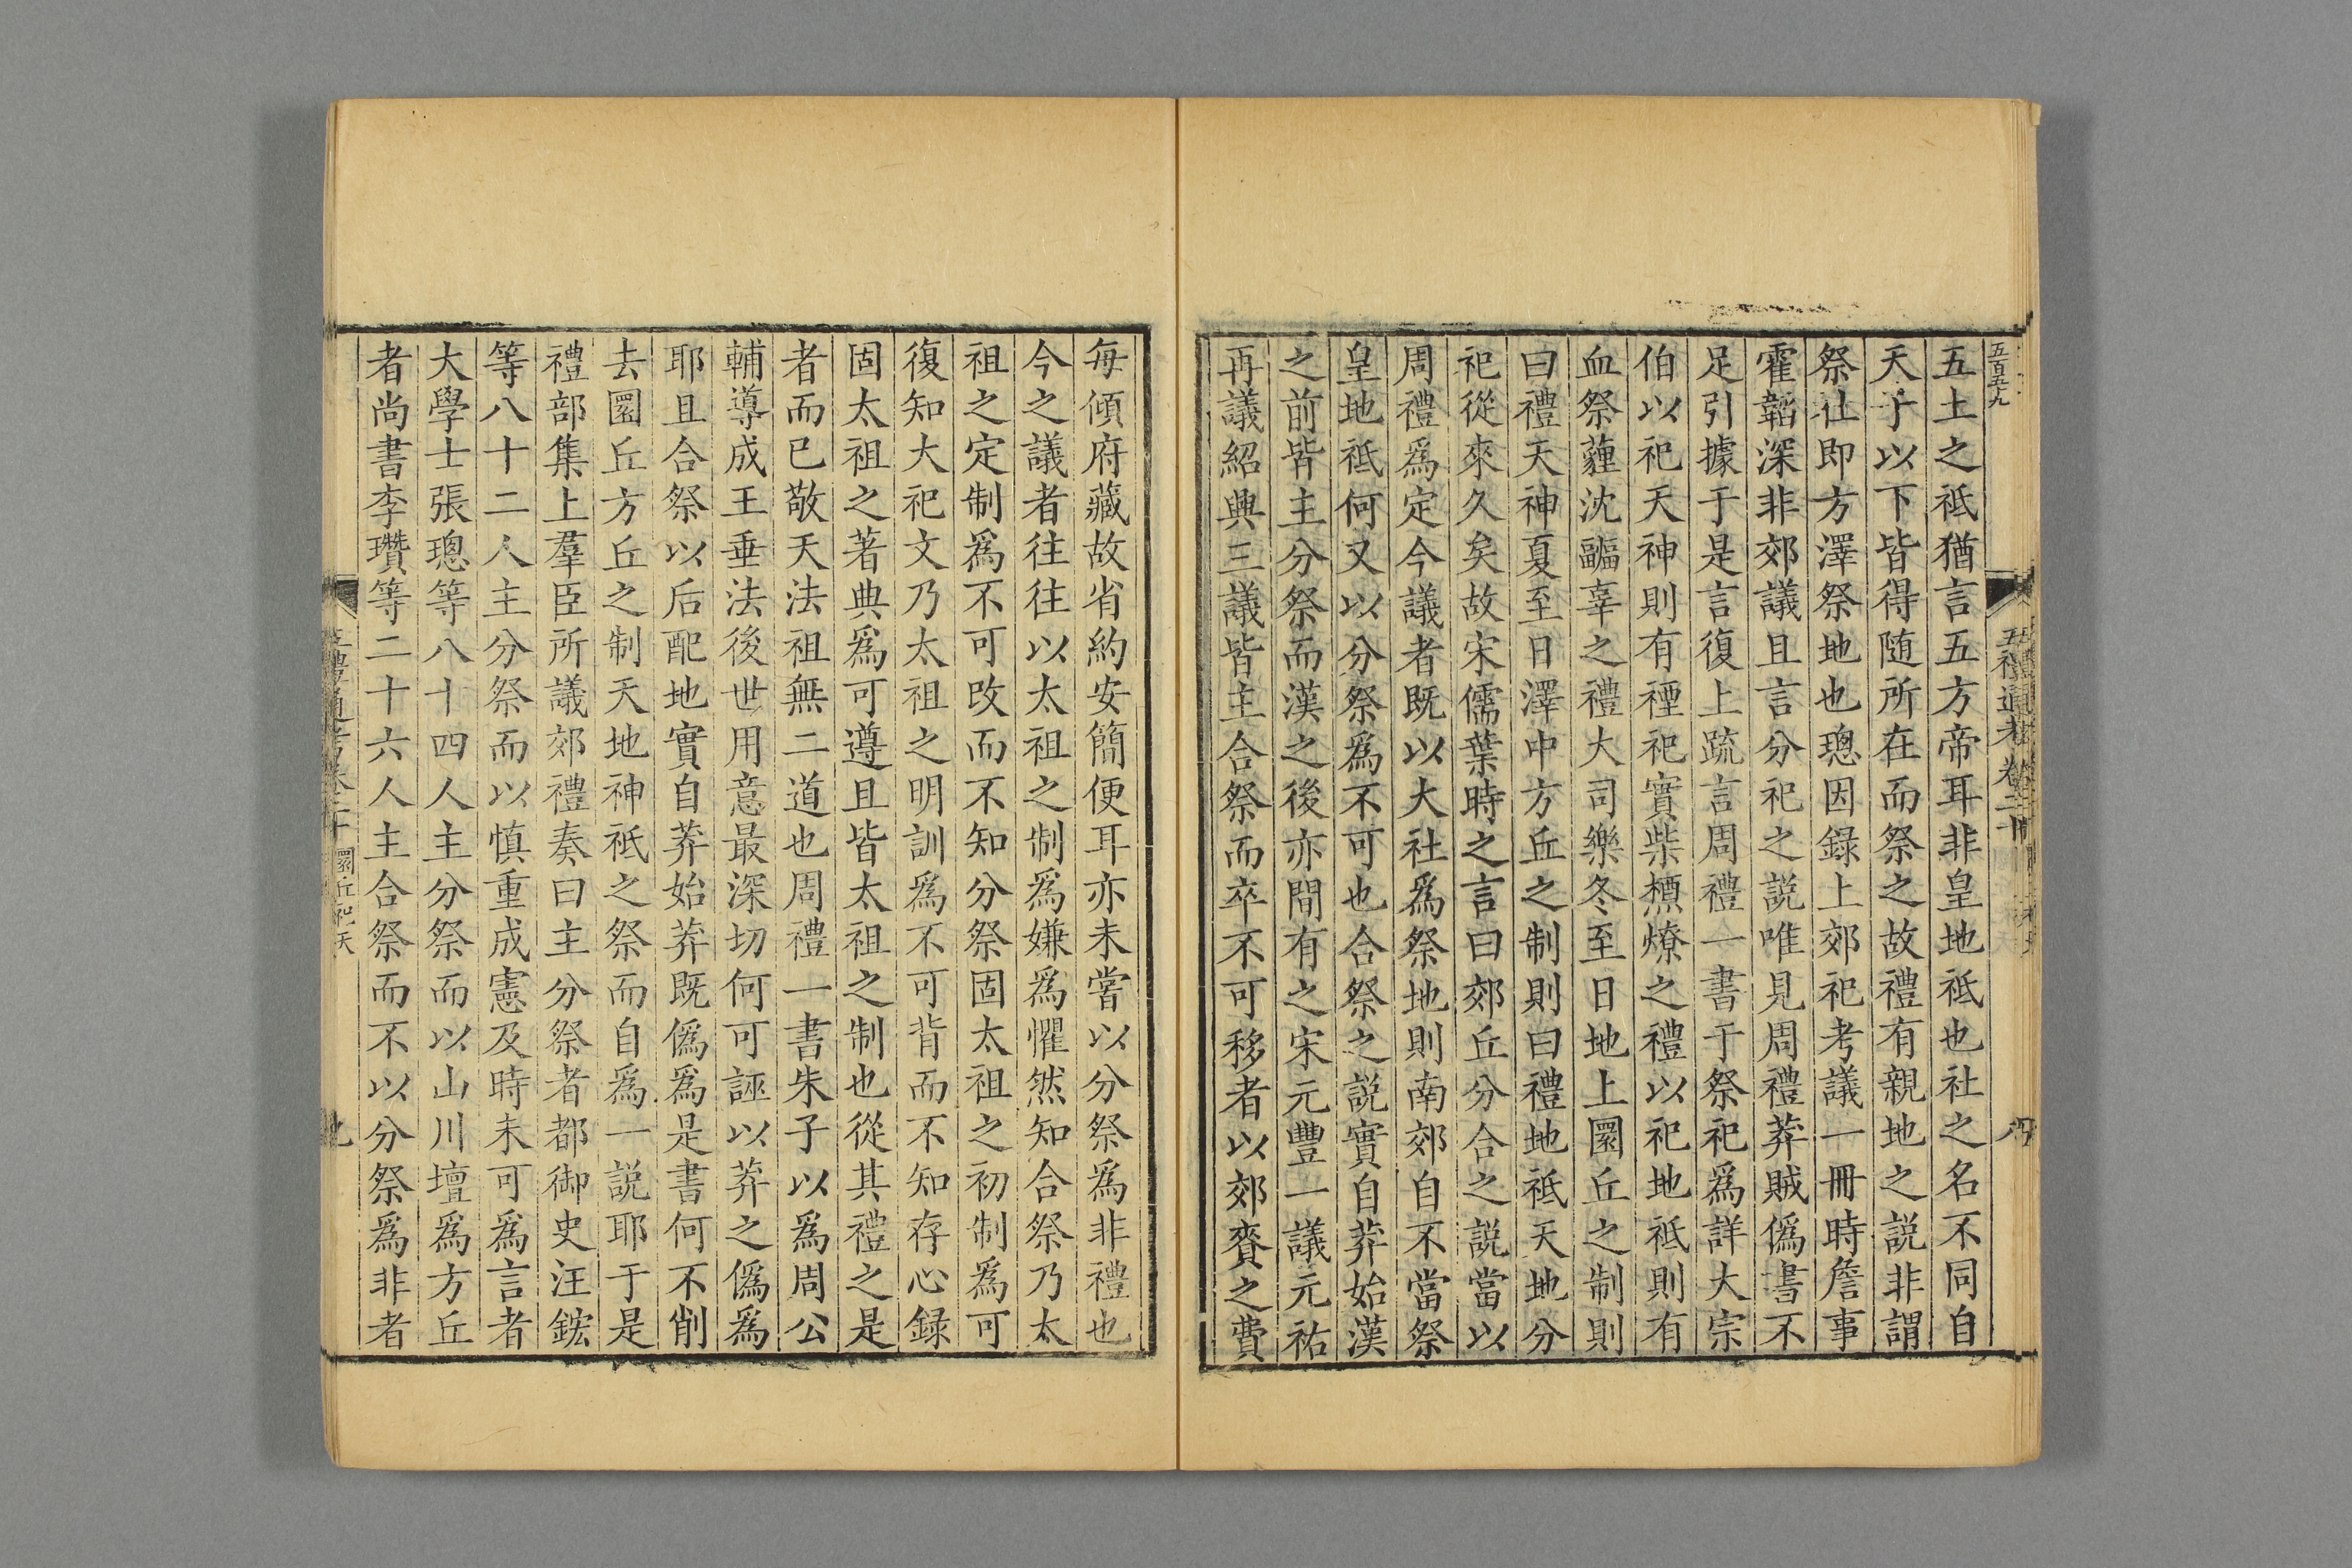 五百五九
五禮通考卷二十
五土之祗猶言五方帝耳非皇地祗也社之名不同自
天子以下皆得隨所在而祭之故禮有親地之説非謂
祭社即方澤祭地也璁因録上郊祀考議一冊時詹事
霍韜深非郊議且言分祀之説唯見周禮莽賊偽書不
足引據于是言復上疏言周禮一書于祭祀爲詳大宗
伯以祀天神則有禋祀實柴槱燎之禮以祀地祗則有
血祭薶沈疈辜之禮大司樂冬至日地上圜丘之制則
曰禮天神夏至日澤中方丘之制則曰禮地祗天地分
祀從來久矣故宋儒葉時之言曰郊丘分合之説當以
周禮爲定今議者既以大社爲祭地則南郊自不當祭
皇地祗何又以分祭爲不可也合祭之説實自莽始漢
之前皆主分祭而漢之後亦間有之宋元豐一議元祐
再議紹興三議皆主合祭而卒不可移者以郊賚之費
每傾府藏故省約安簡便耳亦未嘗以分祭爲非禮也
今之議者往往以太祖之制爲嫌爲懼然知合祭乃太
祖之定制爲不可改而不知分祭固太祖之初制爲可
復知大祀文乃太祖之明訓爲不可背而不知存心録
固太祖之著典爲可遵且皆太祖之制也從其禮之是
者而已敬天法祖無二道也周禮一書朱子以爲周公
輔導成王垂法後世用意最深切何可誣以莽之僞爲
耶且合祭以后配地實自莽始莽既僞爲是書何不削
去圜丘方丘之制天地神祗之祭而自爲一説耶于是
禮部集上羣臣所議郊禮奏曰主分祭者都御史汪鋐
等八十二人主分祭而以慎重成憲及時未可爲言者
大學士張璁等八十四人主分祭而以山川壇爲方丘
者尚書李瓚等二十六人主合祭而不以分祭爲非者
五禮通考卷二十 圜丘祀天
九